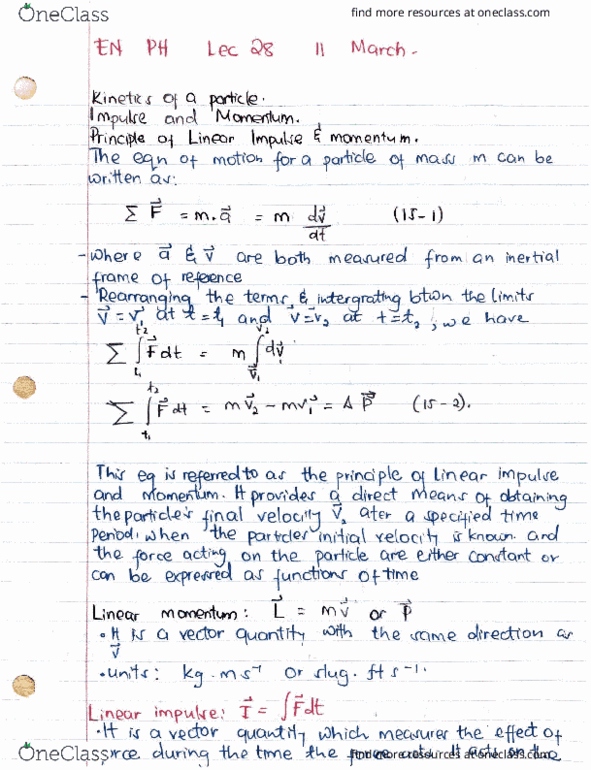 OneClass find more resources at oneclass.com
EN PH Lec 28 11 March.
Kinetics of a particle.
Impulse and Momentum.
Principle of Linear Impulse & momentum.
The eqn of motion for a particle of mass m can be
written as:
Σ F⃗ = m.a⃗ = m dv⃗/dt (15-1)
- where a⃗ & v⃗ are both measured from an inertial
frame of reference
- Rearranging the terms, & intergrating btwn the limits
v⃗ = v⃗₁ at t=t₁ and v⃗=v⃗₂ at t=t₂, we have
Σ ∫ₜ₁ᵗ² F⃗dt = m ∫ᵥ⃗₁ᵛ⃗² dv⃗
Σ ∫ₜ₁ᵗ² F⃗dt = mv⃗₂ - mv⃗₁ = Δ P⃗ (15-2).
This eq is referred to as the principle of linear impulse
and Momentum. It provides a direct means of obtaining
the particle's final velocity v⃗₂ ater a specified time
period, when the particles initial velocity is known. and
the force acting on the particle are either constant or
can be expressed as functions of time
Linear momentum: L⃗ = mv⃗ or P⃗
• It is a vector quantity with the same direction as
v⃗
• units: kg.ms⁻¹ or slug.ft s⁻¹.
Linear impulse: I⃗ = ∫F⃗dt
• It is a vector quantity which measures the effect of
OneClass during the time the
find more resources at oneclass.com